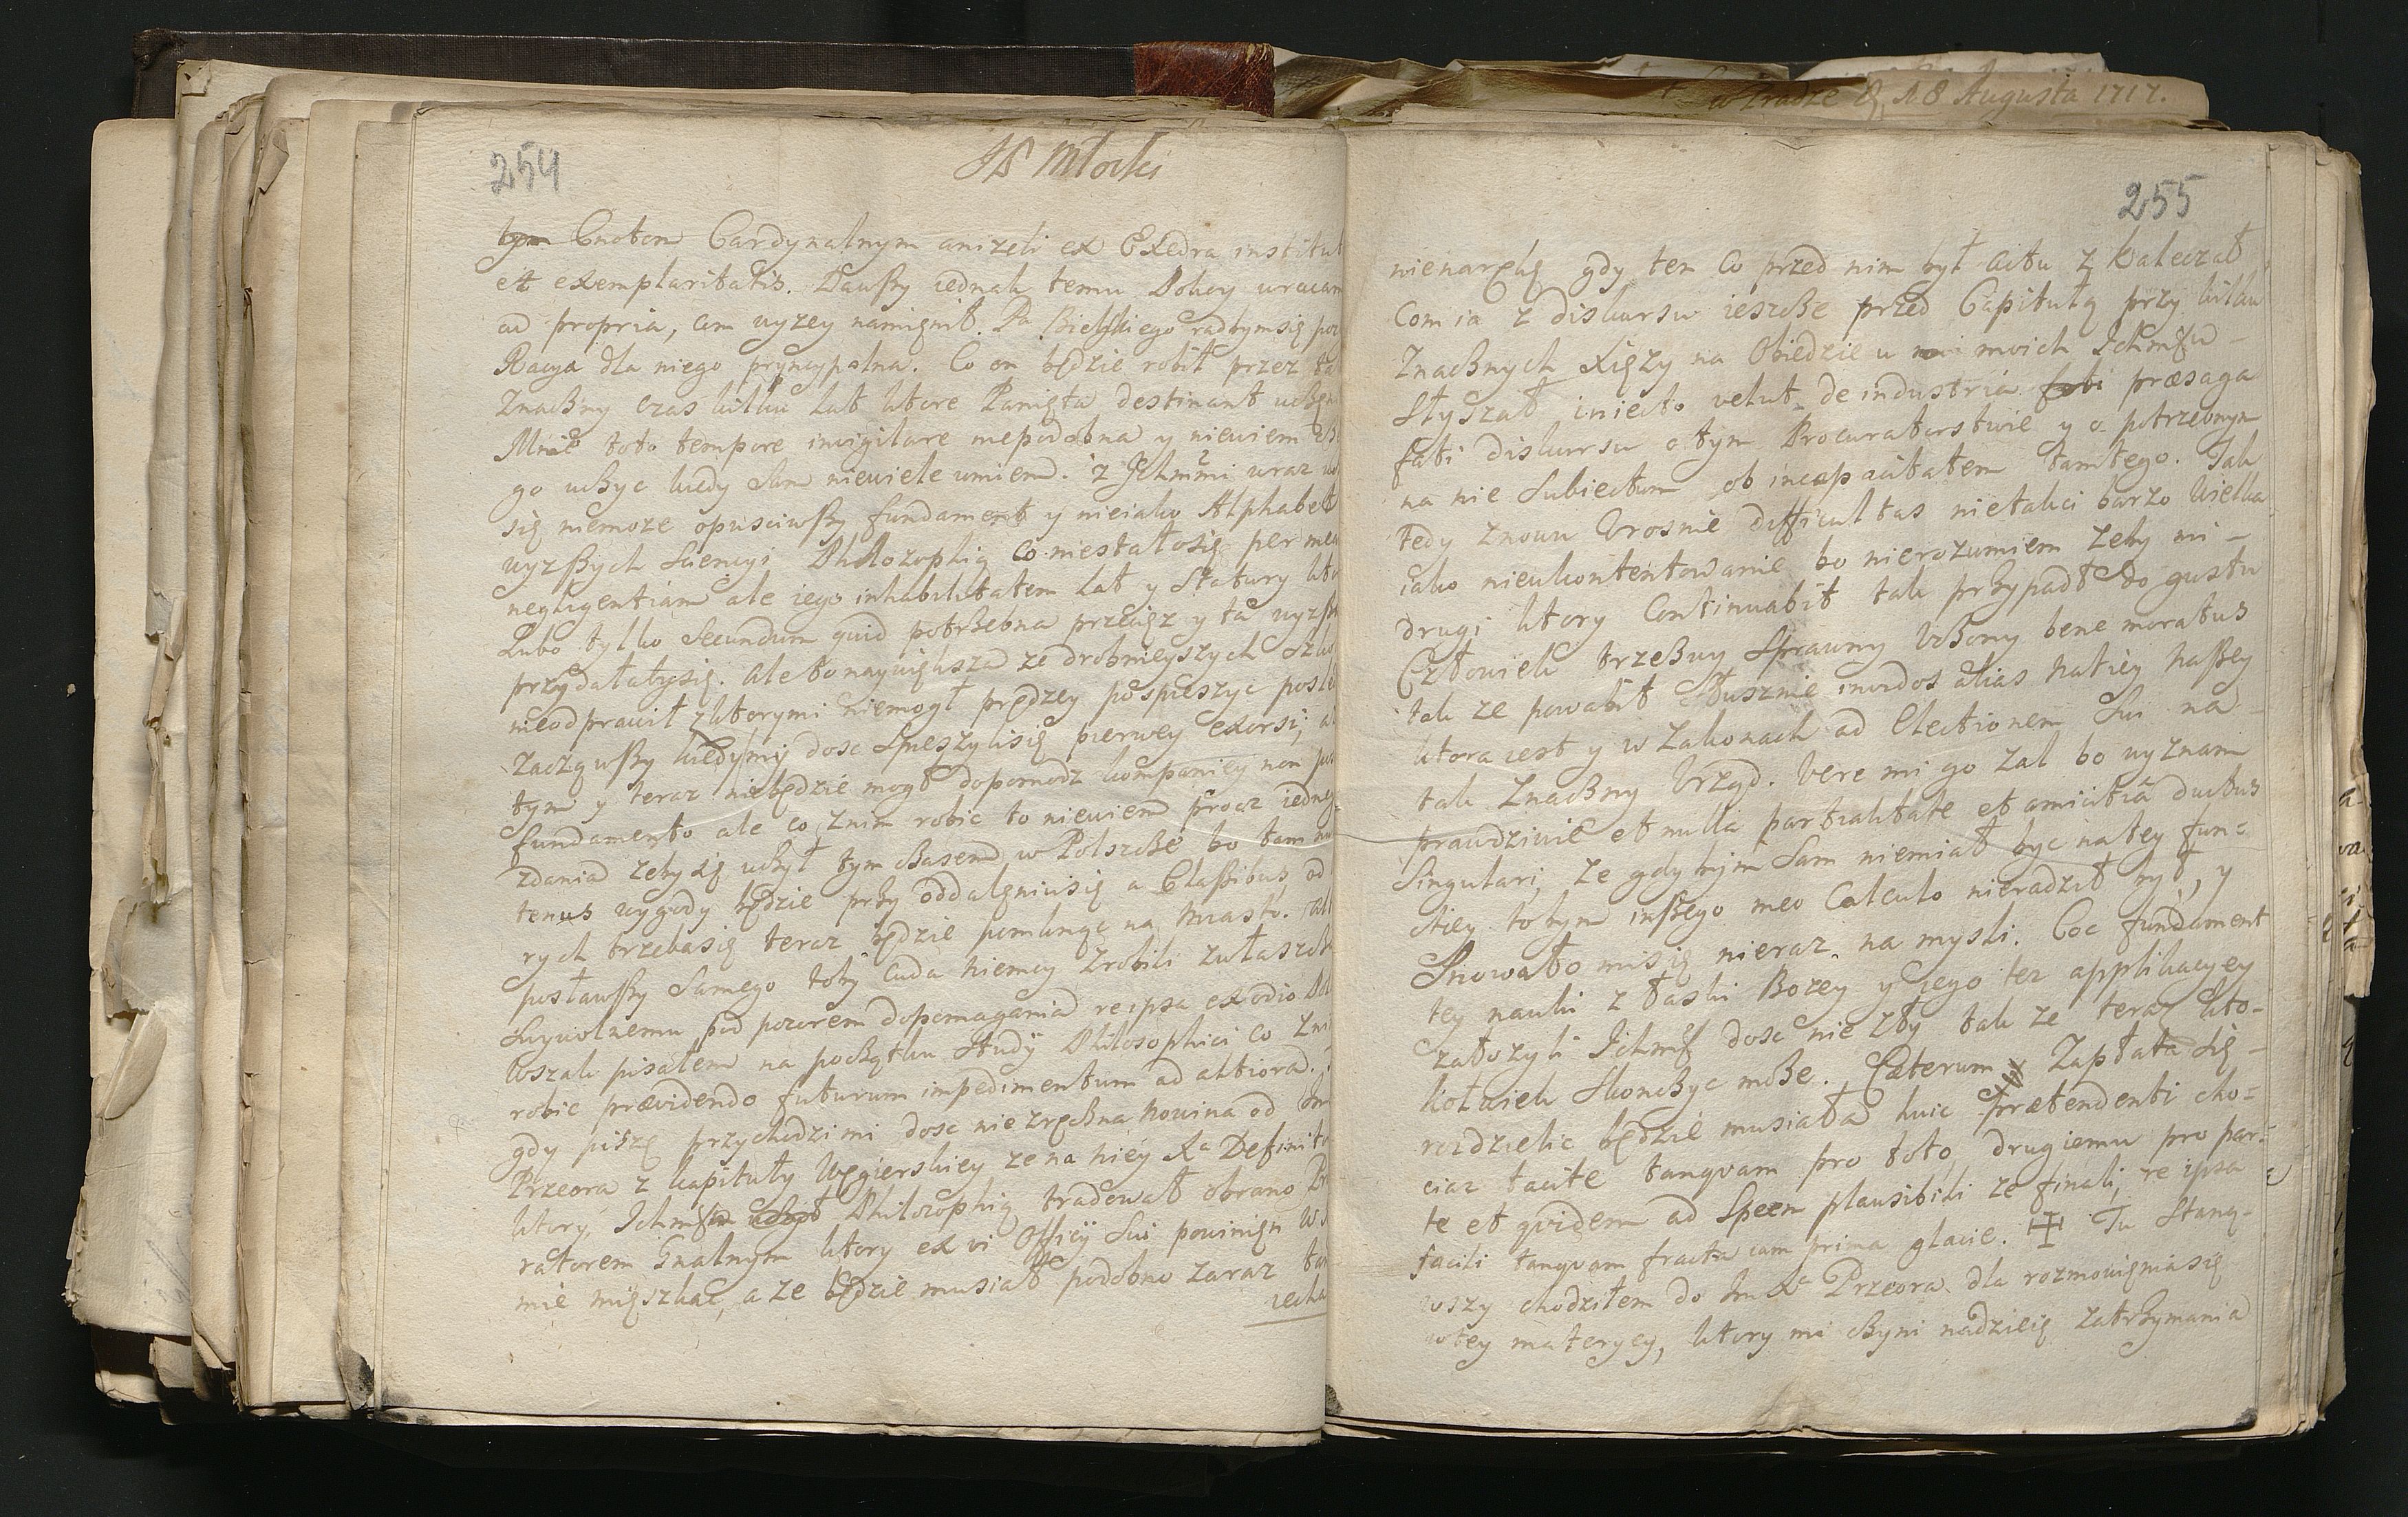 w Pradze d. 18 Augusta 1717.
254
JP Młocki
tym Cnotom Cardynalnym anizeli ex Exedra institut
et exemplaritatis. Dawszy iednak temu Pokoy wracam
ad propria, com wyzey namięnił. Pa Bielskiego radbym się
Racya dla niego pryncypalna. Co on będzie robił przez ta
Znaczny czas kilku Lat ktore Panięta destinant
Mnie toto tempore invigilare niepodobna y niewiem
go uczyc kiedy Sam niewiele umiem. z Ichmmi wraz
się niemoze opusciwszy fundament y nieiako Alphabet
wyzszych Sciencyi Philozophią co niestałosię per meam
negligentiam ale iego inhabilitatem Lat y Statury
Lubo tylko Secundum quid potrzebna przeciez y ta
przydałabysię. Ale to naywiększa ze drobnieyszych
nieodprawił z ktorymi niemogł prędzey pospieszyc
Zacząwszy kiedy my dosc Spieszylisię pierwey exorsi;
tym y teraz niebędzie mogł dopomodz kompaniey non
fundamento ale co znim robic to niewiem procz iedne
zdania zeby się uczył tym czasem w Polszcze bo tam
tenus wygody będzie przy oddalęniusię a Classibus od
rych trzebasię teraz będzie pomknąc na Miasto.
posławszy Samego toby Cuda Niemcy Zrobili zwłaszcz
Swywolnemu pod pozorem dopomagania reipsa ex odio
Wszak pisałem na początku Studÿ Philosophici co
robic prævidendo futurum impedimentum ad altiora.
gdy piszę przychodzi mi dosc niezręczna Nowina od
Przeora z kapituły Węgierskiey ze na niey Xa Definit
ktory Ichmciow uczył Philozophią tradował obrano
ratorem Gnalnym ktory ex vi Officÿ Sui powinien
mie mięszkac, a ze będzie musiał podobno Zaraz
iecha
255
nienaręką gdy ten co przed nim był actu z kaleczał
Com ia z diskursu ieszcze przed Capitułą przy kilku
Znacznych Xięzy na Obiedzie u moich Ichmciu
Słyszał iniecto velut de industria fati præsaga
fati diskursu o tym Procuratorstwie y o potrzebnym
na nie Subiectum ob incapacitatem tamtego. Tak
tedy znowu Urosnie difficultas nietaka barzo Wielka
iako nieukontentowanie bo nierozumiem zeby mi
drugi ktory Continuabit tak przypadł do gustu
Człowiek trzezwy Sprawny Uczony bene moratus
tak ze powabił Słusznie invidos alias Natiey Naszey
ktora iest y w Zakonach ad Electionem Sui na
tak Znaczny Urząd. Vere mi go zal bo wyznam
prawdziwie et nulla partialitate et amicitiâ ductus
Singulari, ze gdybym Sam niemiał byc na tey fun=
ctiey tobym inszego meo Calculo nieradził
Snowało misię nieraz na mysli. Coc fundament
tey nauki z łaski Bozey y iego tez applikacyey
załozyli Ichmć dosc nie zły tak ze teraz kto-
kolwiek skonczyc moze. Cæterum Zapłata się
rozdzielic będzie musiała huic prætendenti cho=
ciaz tacite tanqvam pro toto, drugiemu pro par=
te et qvidem ad Spem plausibili ze finali, re ipsa
facili tanqvam fracta iam prima glacie. Tu Stanę-
wszy chodziłem do Im Xa Przeora dla rozmowięnia się
wtey materyey, ktory mi czyni nadzieię Zatrzymania